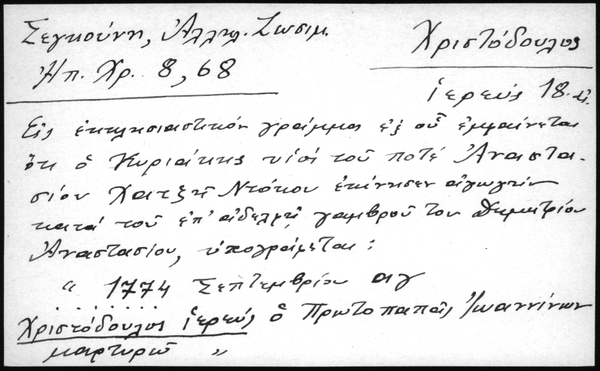 Σεγκούνη, Ἀλληλ. Ζωσιμ.
Χριστόδουλος
Ἠπ. Χρ. 8, 68
ἱερεύς 18
Εἰς ἐκκλησιαστικόν γράμμα ἐξ οὗ ἐμφαίνεται
ὅτι ὁ Κυριάκης υἱός τοῦ ποτέ Ἀναστα-
σίου Χατζῆ Ντόκου ἐκίνησεν ἀγωγήν
κατά τοῦ ἐπ' ἀδελφῇ γαμβροῦ του Δημητρίου
Ἀναστασίου, ὑπογράφεται:
" 1774 Σεπτεμβρίου αγ
. . . . . . .
Χριστόδουλος ἱερεύς ὁ Πρωτοπαπᾶς Ἰωαννίνων
μαρτυρῶ "